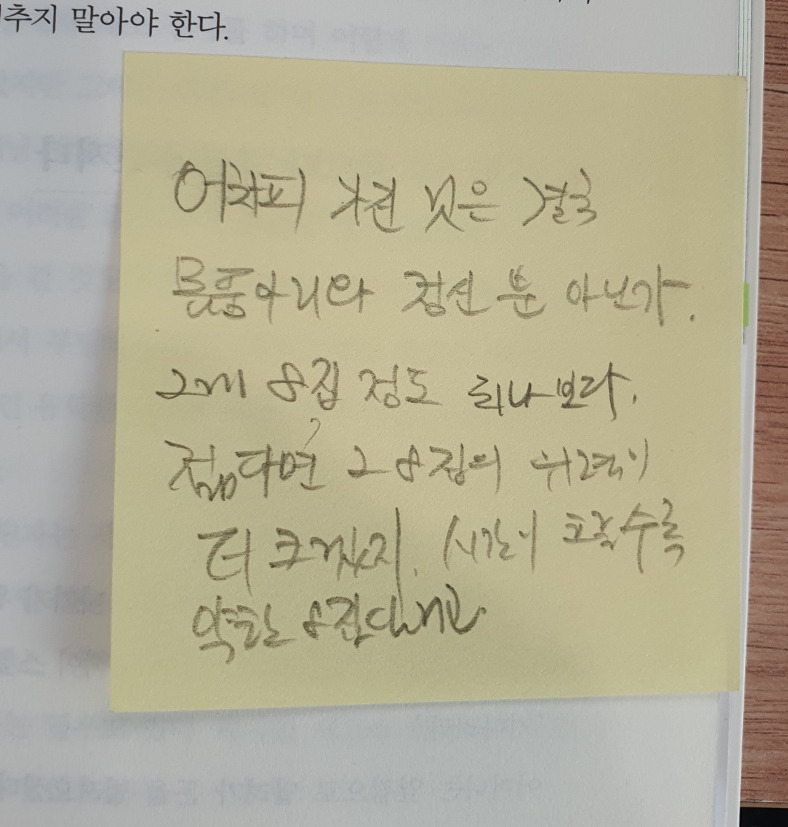 추지 말아야 한다.
어차피 가진 것은 결국
몸뚱아리와 정신 뿐 아닌가.
그게 8집 정도 되나보다.
젊다면 그 8집의 위력이
더 크겠지. 시간이 흐를수록
약한 8집